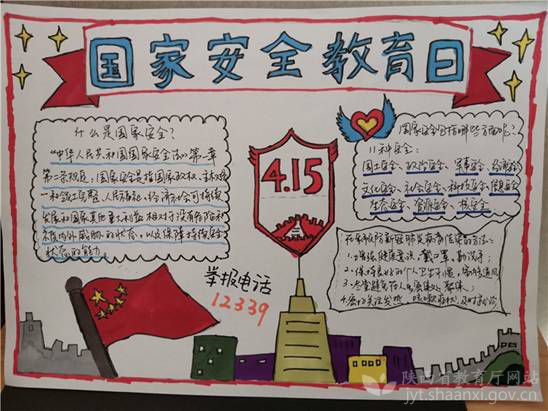 国家安全教育日
什么是国家安全?
《中华人民共和国国家安全法》第一章
第二条规定,国家安全是指国家政权、主权、统
一和领土完整、人民福祉、经济社会可持续
发展和国家其他重大利益相对处于没有危险和
不受内外威胁的状态,以及保障持续安全
状态的能力
4.15
国家安全包括哪些方面呢?
11种安全:
国土安全、政治安全、军事安全、经济安全
文化安全、社会安全、科技安全、信息安全
生态安全、资源安全、核安全
1.增强健康意识 戴口罩,勤洗手;
2.保持良好的个人卫生习惯,
3.尽量避免
举报电话
12339
陕西省教育厅网站
jyt.shaanxi.gov.cn